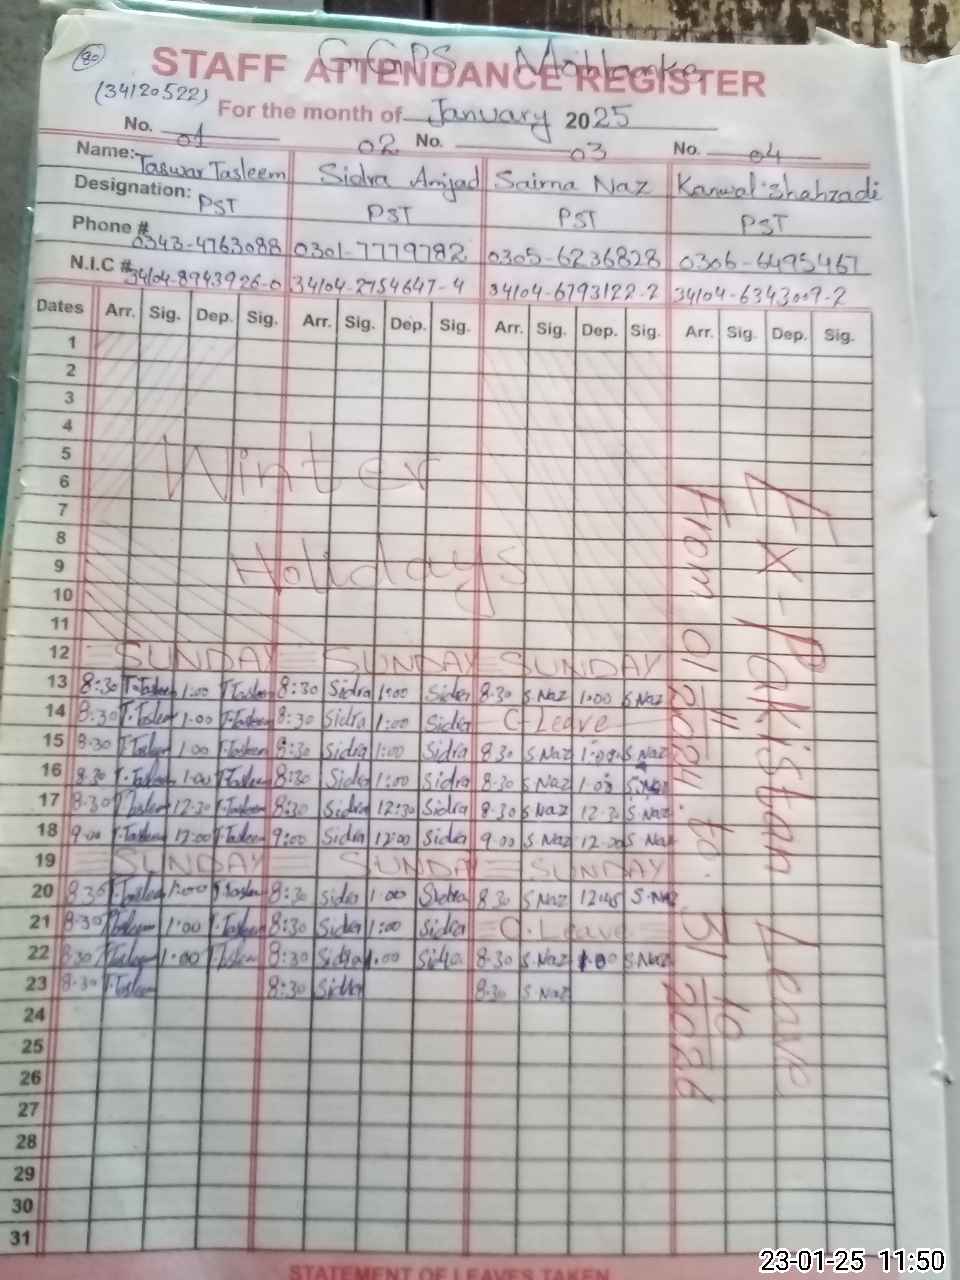 80
G.G.P.S
STAFF ATTENDANCE REGISTER
(34120522)
For the month of January 2025
No. 01 02 No. 03 No. 04
Name: Taswar Tasleem Sidra Amjad Saima Naz Kanwal Shahzadi
Designation: PST PST PST PST
Phone # 0343-4763088 0301-7779782 0305-6236828 0306-6495467
N.I.C # 34104-8943926-0 34104-2754647-4 34104-6793122-2 34104-6343009-2
Dates Arr. Sig. Dep. Sig. Arr. Sig. Dep. Sig. Arr. Sig. Dep. Sig. Arr. Sig. Dep. Sig.
1
2
3
4
5
Winter
6
7
8
9
Holidays
10
11
12 SUNDAY SUNDAY SUNDAY
13 8:30 T.Tasleem 1:00 T.Tasleem 8:30 Sidra 1:00 Sidra 8.30 S.Naz 1.00 S.Naz
14 8:30 T.Tasleem 1.00 T.Tasleem 8:30 Sidra 1:00 Sidra C-Leave
15 8.30 T.Tasleem 1.00 T.Tasleem 8:30 Sidra 1:00 Sidra 8.30 S.Naz 1.00 S.Naz
16 8.30 T.Tasleem 1.00 T.Tasleem 8:30 Sidra 1:00 Sidra 8.30 S.Naz 1.00 S.Naz
17 8.30 T.Tasleem 12.30 T.Tasleem 8:30 Sidra 12:30 Sidra 8.30 S.Naz 12.30 S.Naz
18 9.00 T.Tasleem 12:00 T.Tasleem 9:00 Sidra 12:00 Sidra 9.00 S.Naz 12.00 S.Naz
19 SUNDAY SUNDA SUNDAY
20 8.30 T.Tasleem 1:00 T.Tasleem 8:30 Sidra 1.00 Sidra 8.30 S.Naz 12:45 S.Naz
21 8.30 T.Tasleem 1:00 T.Tasleem 8:30 Sidra 1:00 Sidra C.Leave
22 8.30 T.Tasleem 1:00 T.Tasleem 8:30 Sidra 1:00 Sidra 8.30 S.Naz 1:00 S.Naz
23 8.30 T.Tasleem 8:30 Sidra 8.30 S.Naz
24
25
26
27
28
29
30
31
Ex-Pakistan Leave
From 01/11/2024 to 31/10/2026
STATEMENT OF LEAVES TAKEN
23-01-25 11:50